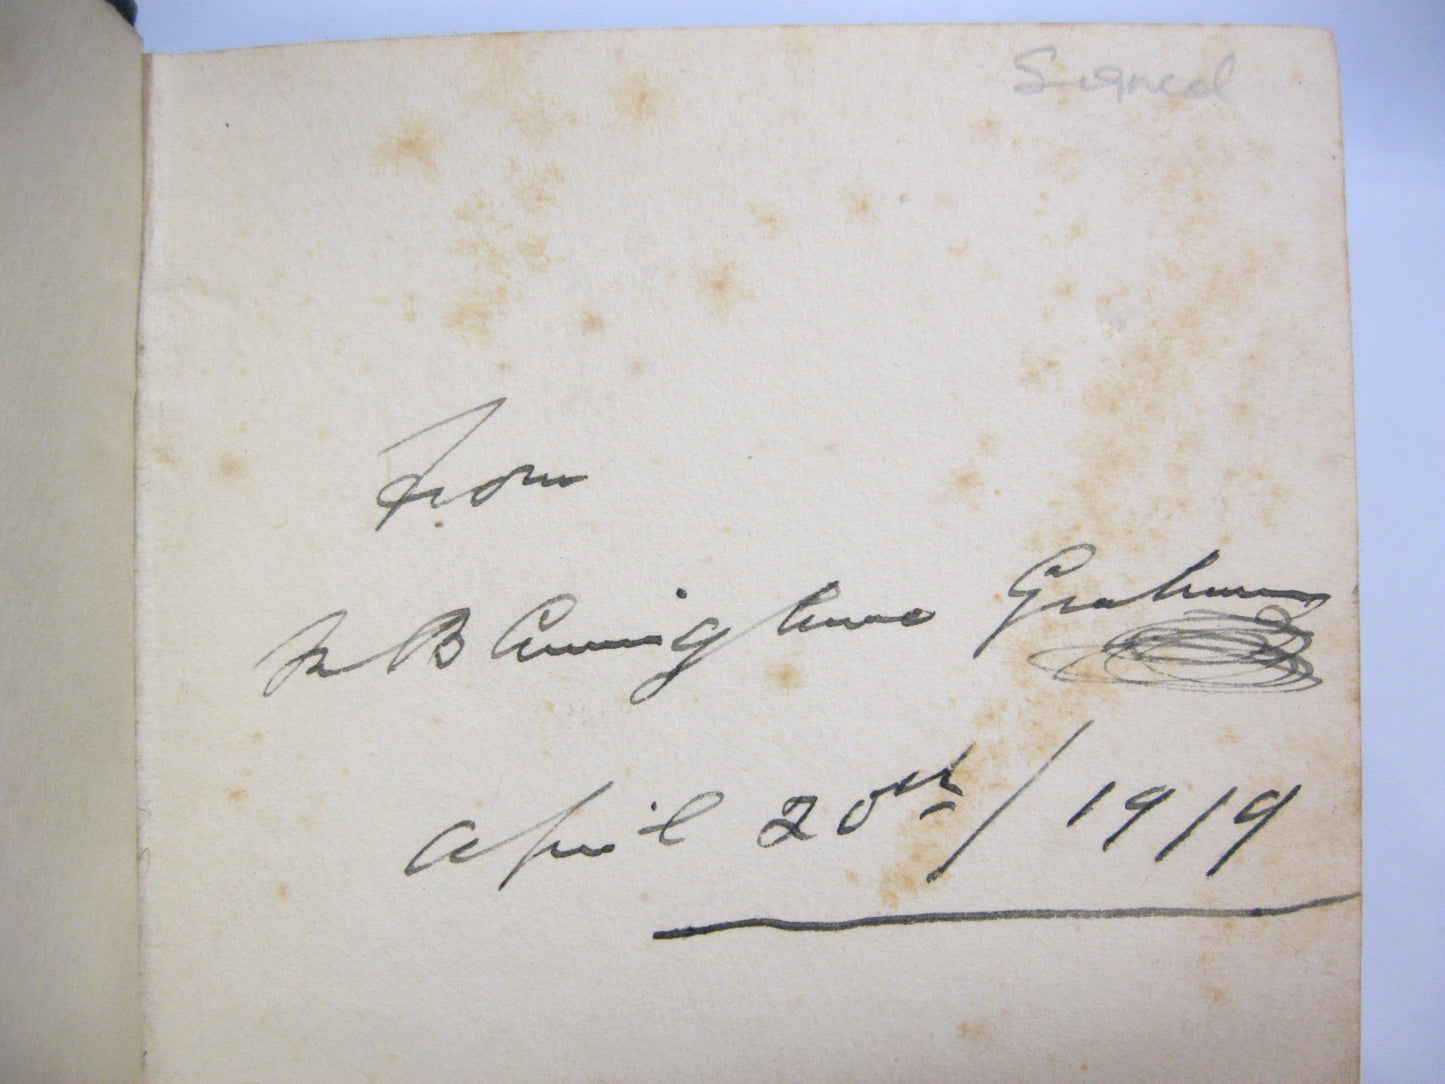 Signed
From
R B Cunninghame Graham
April 20th/1919